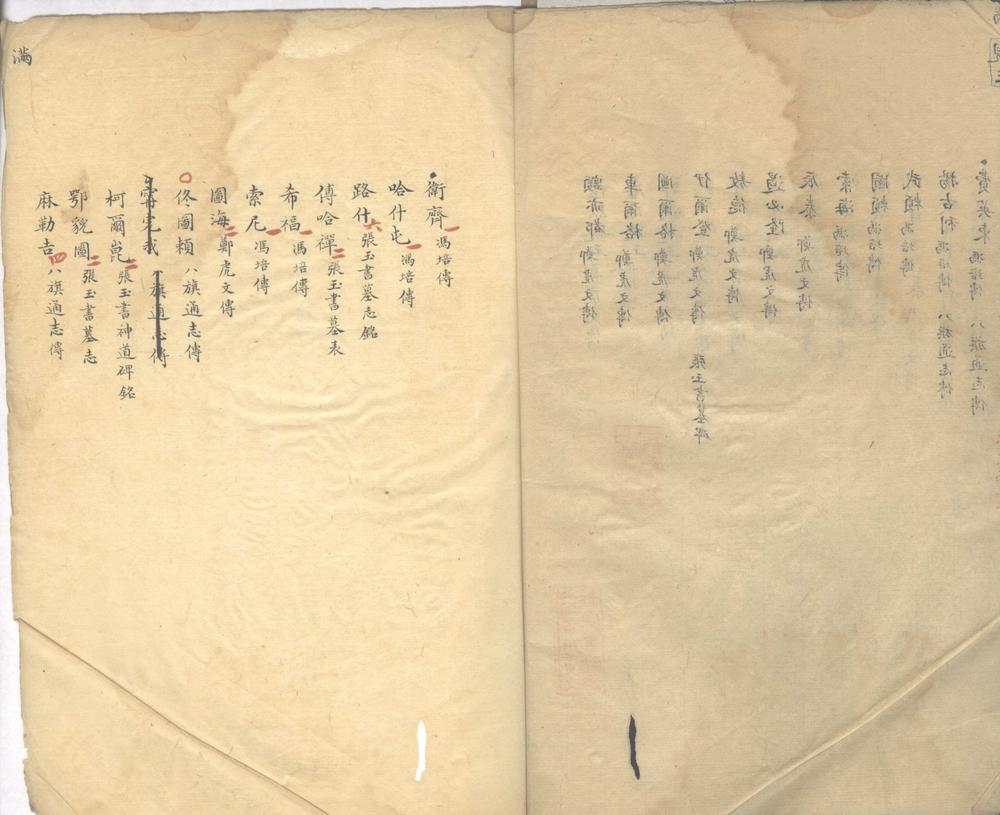 滿
衛齊 馮培傳
哈什屯 一 馮培傳
路什 六 張玉書墓志銘
傅哈禪 二 張玉書墓表
希福 一 馮培傳
索尼 一 馮培傳
圖海 二 鄭虎文傳
佟圖賴 八旗通志傳
八旗通志傳
柯爾崑 二 張玉書神道碑銘
鄂貌圖 二 張玉書墓志
麻勒吉 四 八旗通志傳
費英東 馮培傳 八旗通志傳
揚古利 馮培傳 八旗通志傳
武賴 馮培傳
圖賴 馮培傳
索海 馮培傳
辰泰 鄭虎文傳
遏必隆 鄭虎文傳
敖德 鄭虎文傳
伊爾登 鄭虎文傳 張玉書墓碑
圖爾格 鄭虎文傳
車爾格 鄭虎文傳
額亦都 鄭虎文傳